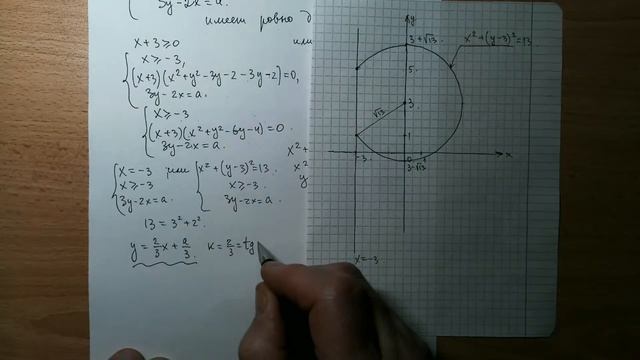 3y-2x=a.
имеет ровно
x+3⩾0
или
x⩾-3,
(x+3)(x²+y²-3y-2-3y-2)=0,
3y-2x=a.
x⩾-3
(x+3)(x²+y²-6y-4)=0.
3y-2x=a.
x=-3 или x²+(y-3)²=13.
x⩾-3 x⩾-3.
3y-2x=a. 3y-2x=a.
13=3²+2².
y=2/3x+a/3. k=2/3=tg
y
3+√13
x²+(y-3)²=13.
5
√13
3
1
-3
0
x
3-√13
x=-3